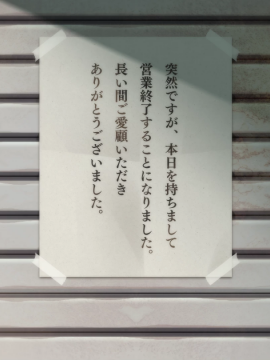 突然ですが、本日を持ちまして
営業終了することになりました。
長い間ご愛顧いただき
ありがとうございました。